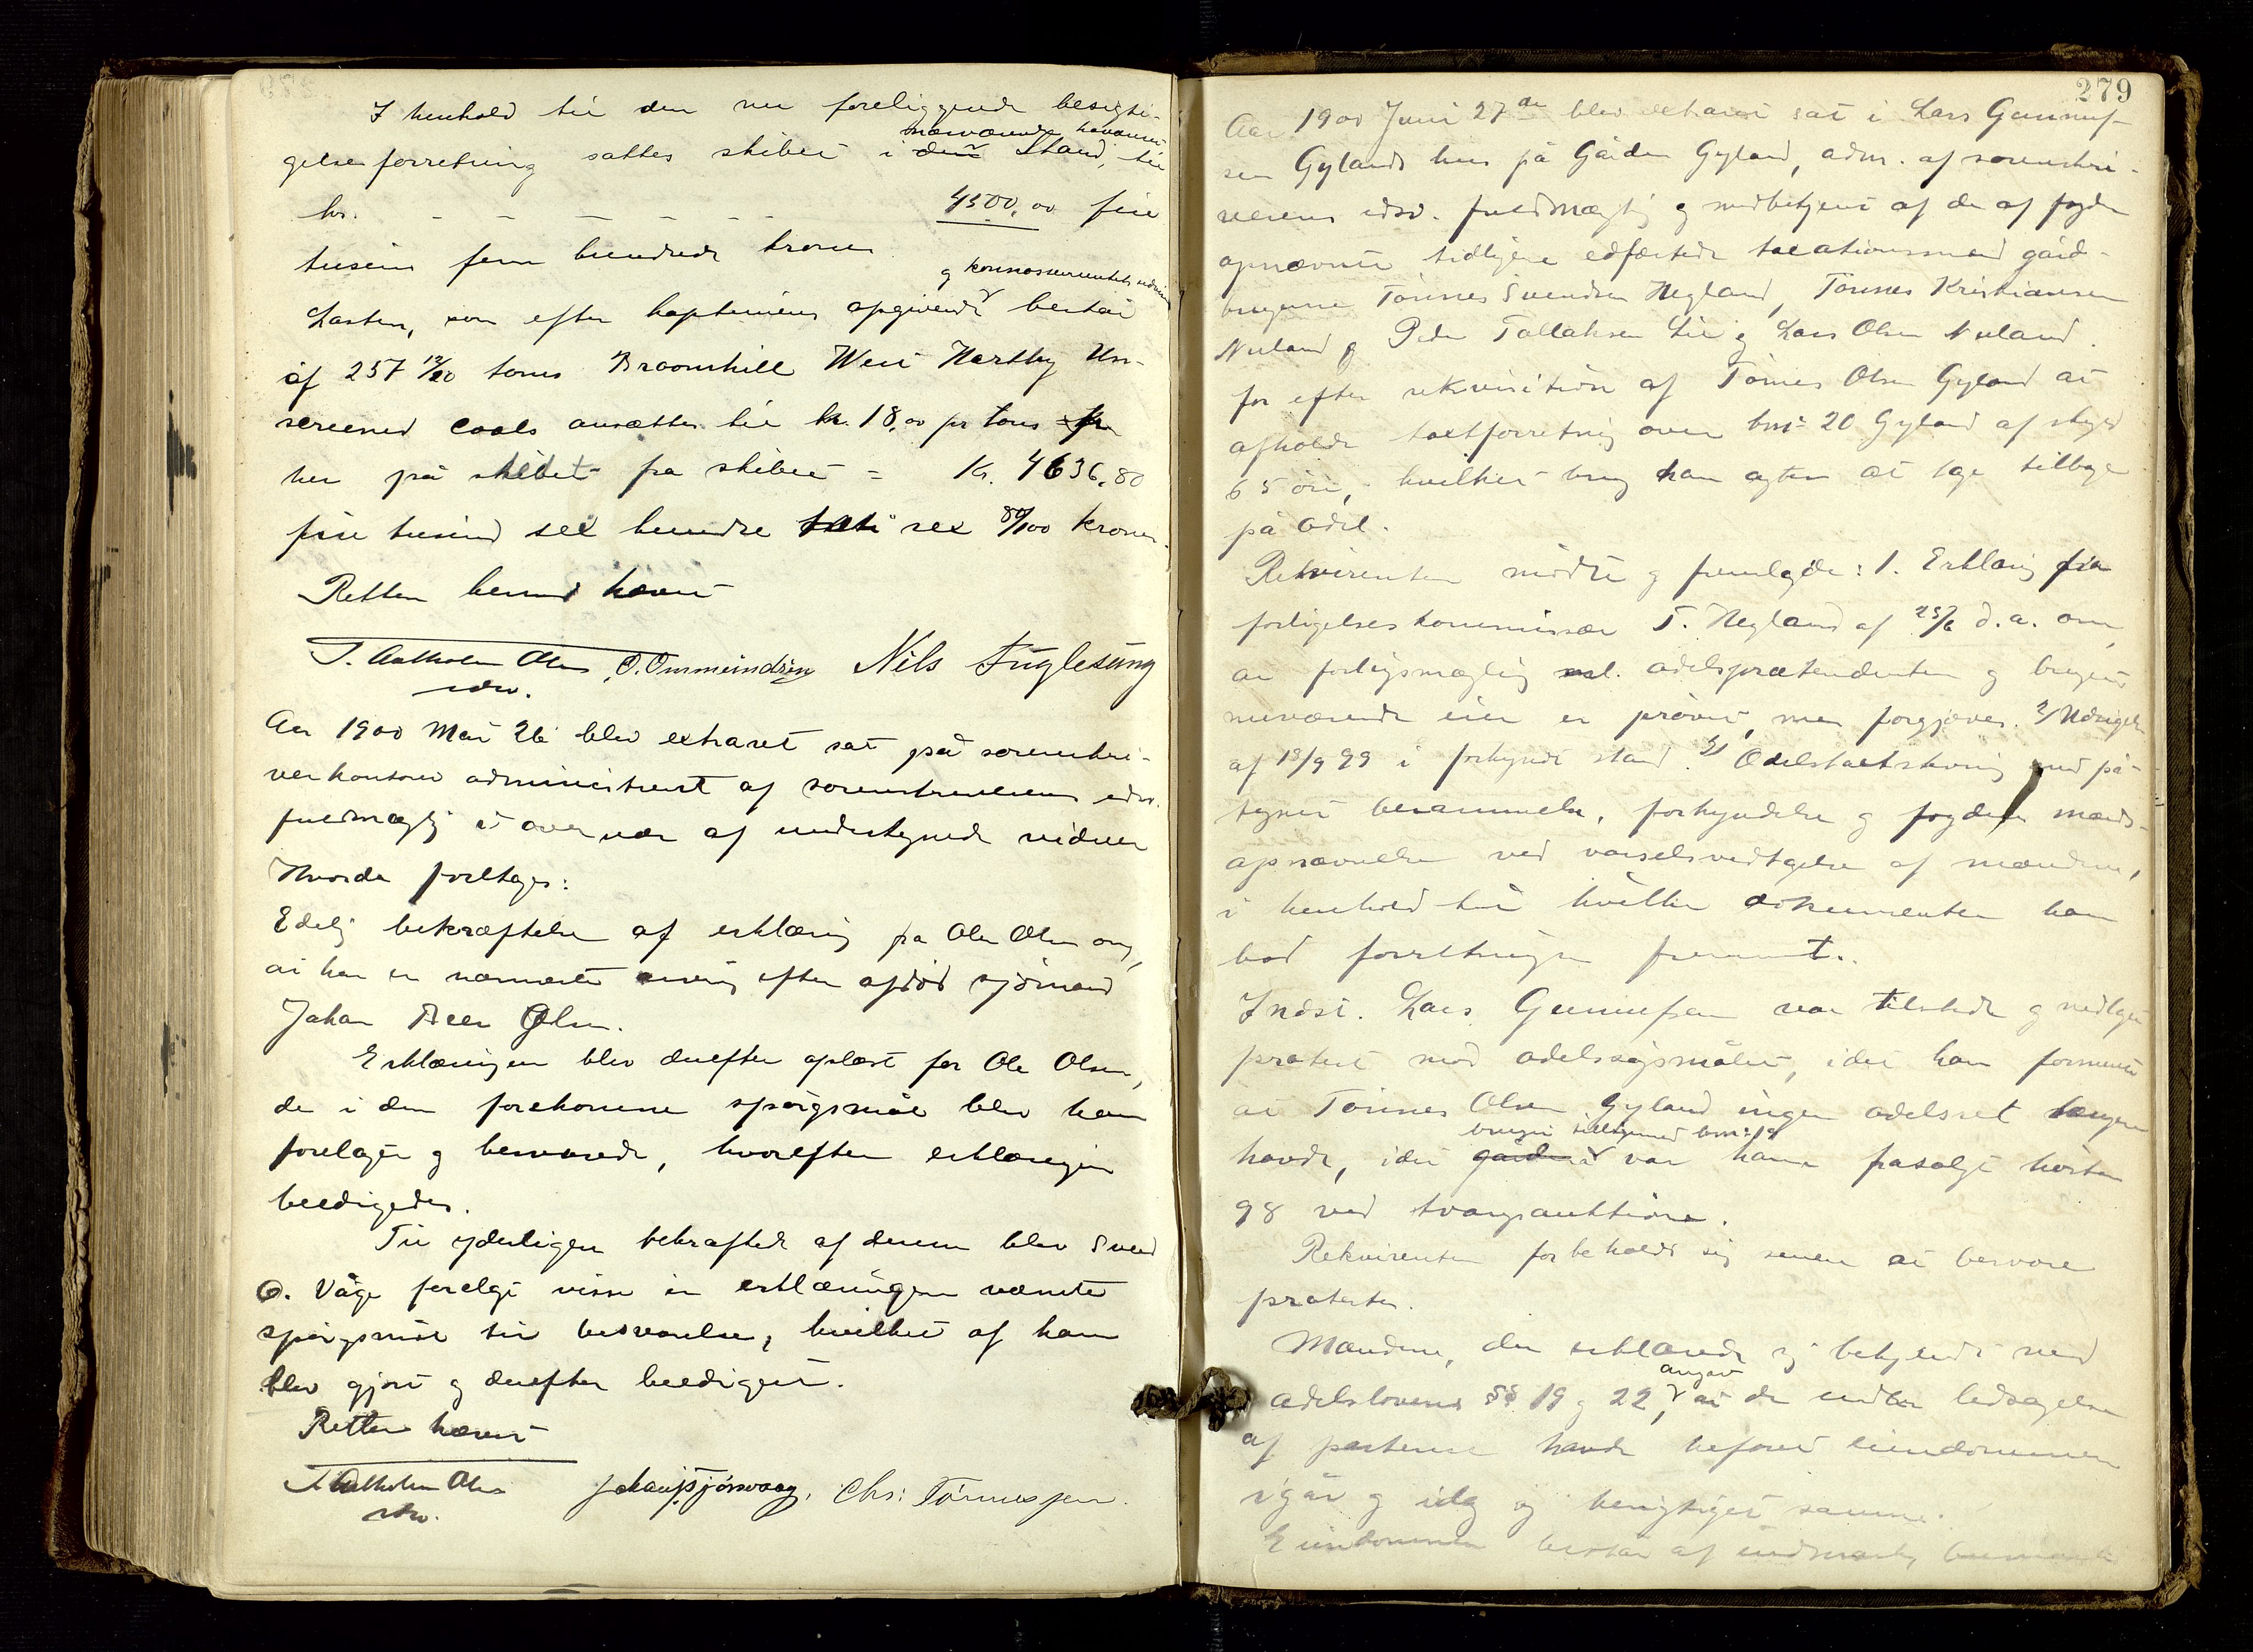 I henhold til den nu foreliggende besigti-
nærværende havarerte
gelsesforretning sattes skibet i den Stand, til
kr. - - - - - - 4500,00 fire
tusind fem hundrede kroner.
og konnossementets udvisende
Lasten, som efter kapteinens opgivende består
af 257 12/20 tons Broomhill West Hartley Un-
screened coals ansættes til kr. 18,00 pr tons
her på skibet fra skibet = Kr. 4636,80
fire tusind sex hundre sex 80/100 kroner.
Retten hermed hævet
T. Aalholm Olsen O. Ommundsen Nils Fuglesang
edsv.
Aar 1900 Mai 26 blev extraret sat på sorenskri-
verkontoret administreret af sorenskriverens edsv.
fuldmægtig i overvær af undertegnede vidner
Hvorda foretoges:
Edelig bekræftelse af erklæring fra Ole Olsen om,
at han er nærmeste arving efter afdød sjömand
Johan Olsen.
Erklæringen blev derefter oplæst for Ole Olsen,
de i den forekomne spørgsmål blev ham
forelagte og besvarede, hvorefter erklæringen
beedigedes.
Til yderligere bekræftelse af denne blev Svend
O. Våge forelagt visse i erklæringen nævnte
spørgsmål til besvarelse, hvilket af ham
blev gjort og derefter beediget.
Retten hævet
T. Aalholm Olsen Johan Tjörsvaag. Chr: Tönnessen.
edsv.
279
Aar 1900 Juni 27de blev extraret sat i Lars Gunnuf-
sen Gylands hus på Gården Gyland, adm. af sorenskri-
verens edsv. fuldmægtig og medbetjent af de af fogden
opnævnte tidligere edfæstede taxationsmænd gård-
brugerne Tönnes Svendsen Hegland, Tönnes Kristiansen
Nuland og Peder Tallaksen Lie og Lars Olsen Nuland.
for efter rekvisition af Tönnes Olsen Gyland at
afholde taxtforretning over bno 20 Gyland af skyld
65 öre, hvilket brug han agter at tage tilbage
på Odel.
Rekvirenten mödte og fremlagde: 1. Erklæring fra
forligelseskommissær T. Hegland af 25/6 d.a. om,
at forligsmægling mel. odelsprætendenten og brugets
nuværende eier er prøvet, men forgjæves. 2/ Udsigelse
af 13/9 99 i forkyndt stand. 3/ Odelstaxtstevning med på-
tegnet berammelse, forkyndelse og fogdens mænds-
opnævnelse ved varselsvedtagelse af mændene,
i henhold til hvilke dokumenter han
bad forretningen fremmet.
Indst. Lars Gunnufsen var tilstede og nedlagde
protest mod odelssøgsmålet, idet han formente
at Tönnes Olsen Gyland ingen odelsret længere
bruget tilligemed bno 19
havde, idet gården var ham frasolgt høsten
98 ved tvangsauktion.
Rekvirenten forbeholdt sig senere at besvare
protesten.
Mændene, der erklærede sig bekjendt med
angav
odelslovens §§ 19 og 22, at de under ledsagelse
af parterne havde befaret eiendommen
igår og idag og besigtiget samme.
Eiendommen består af indmark,